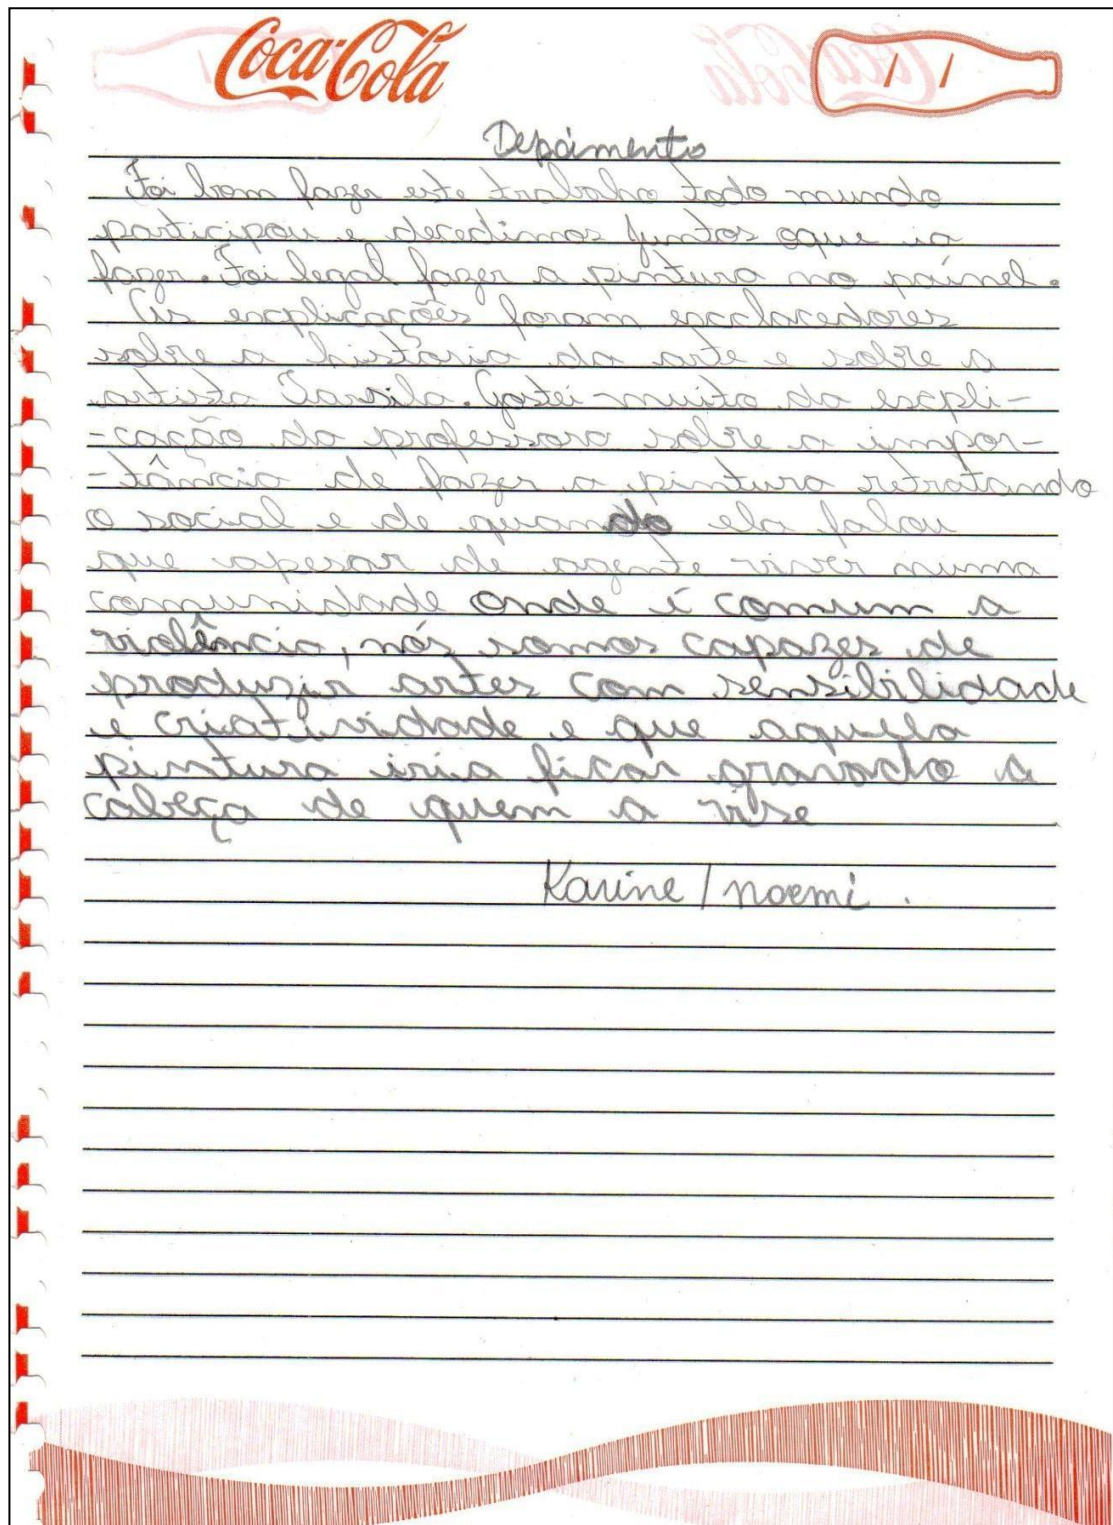 Coca-Cola
/ /
Depoimento
Foi bom fazer este trabalho todo mundo
participou e decedimos juntos oque ia
fazer. Foi legal fazer a pintura no paínel.
As explicações foram escclacedores
sobre a história da arte e sobre a
artista Tarsila. Gostei muito da expli-
-cação da professora sobre a impor-
-tância de fazer a pintura retratando
o social e de quando ela falou
que apesar de agente viver numa
comunidade onde é comum a
violência, nós somos capazes de
produzir artes com sensibilidade
e criatividade e que aquela
pintura iria ficar gravado a
cabeça de quem a visse
Karine / noemi .